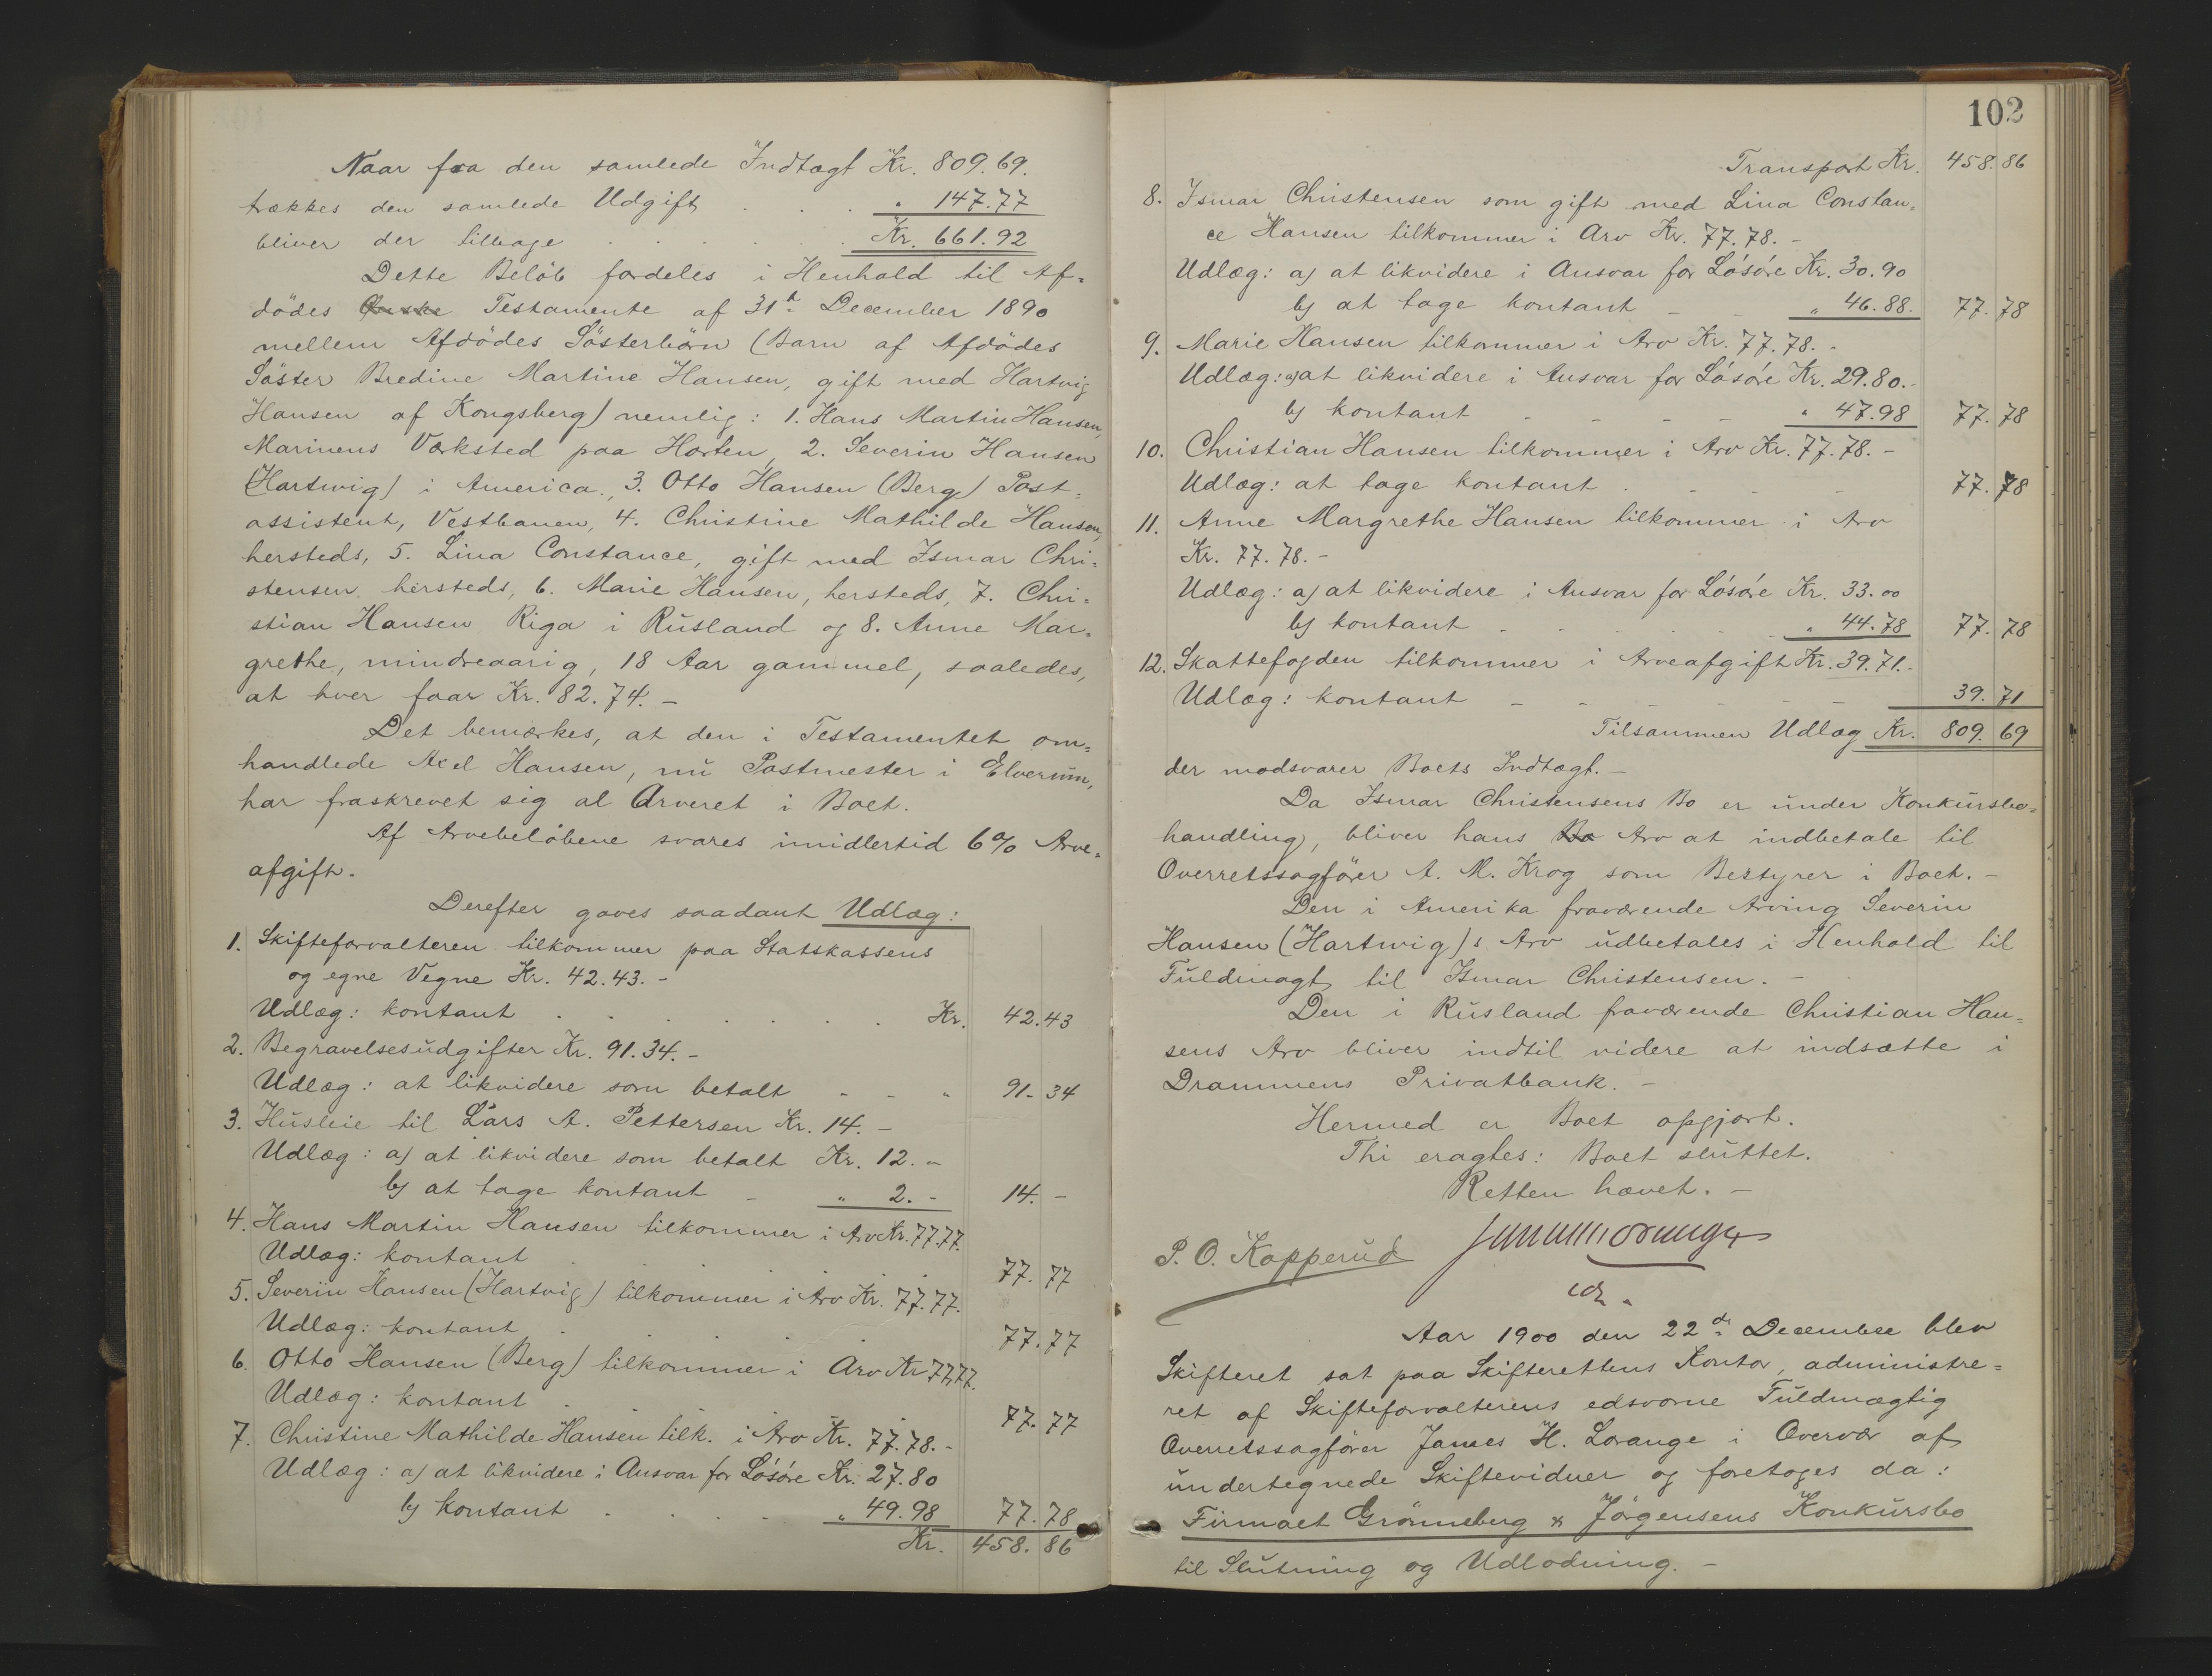 Naar fra den samlede Indtægt Kr. 809.69.
trækkes den samlede Udgift . . . " 147.77
bliver der tilbage . . . . . . Kr. 661.92
Dette Beløb fordeles i Henhold til Af=
dødes Testamente af 31te December 1890
mellem Afdødes Søsterbørn (Barn af Afdødes
Søster Bredine Martine Hansen, gift med Hartvig
Hansen af Kongsberg) nemlig: 1. Hans Martin Hansen,
Marinens Værksted paa Horten, 2. Severin Hansen
(Hartwig) i America., 3. Otto Hansen (Berg) Post=
assistent, Vestbanen, 4. Christine Mathilde Hansen,
hersteds, 5. Lina Constance, gift med Ismar Chri=
stensen hersteds, 6. Marie Hansen, hersteds, 7. Chri=
stian Hansen Riga i Rusland og 8. Anne Mar=
grethe, mindreaarig, 18 Aar gammel, saaledes,
at hver faar Kr. 82.74. -
Det bemærkes, at den i Testamentet om=
handlede Axel Hansen, nu Postmester i Elverum,
har fraskrevet sig al Arveret i Boet.
Af Arvebeløbene svares imidlertid 6% Arve=
afgift.
Derefter gaves saadant Udlæg:
1. Skifteforvalteren tilkommer paa Statskassens
og egne Vegne Kr. 42.43. -
Udlæg: kontant . . . . . . . Kr. 42.43
2. Begravelsesudgifter Kr. 91.34. -
Udlæg: at likvidere som betalt - - " 91-34
3. Husleie til Lars A. Pettersen Kr. 14. -
Udlæg: a) at likvidere som betalt Kr. 12. -
b) at tage kontant - " 2. - 14. -
4. Hans Martin Hansen tilkommer i Arv Kr. 77.77.
Udlæg: kontant . . . . . 77.77
5. Severin Hansen (Hartvig) tilkommer i Arv Kr. 77.77.
Udlæg: kontant . . . . . 77.77
6. Otto Hansen (Berg) tilkommer i Arv Kr 77.77.
Udlæg: kontant . . . . . 77.77
7. Christine Mathilde Hansen tilk. i Arv Kr. 77.78. -
Udlæg: a) at likvidere i Ansvar for Løsøre Kr. 27.80
b) kontant . . . . " 49.98 77.78
Kr. 458.86
102
Transport Kr. 458.86
8. Ismar Christensen som gift med Lina Constan=
ce Hansen tilkommer i Arv Kr. 77.78. -
Udlæg: a) at likvidere i Ansvar for Løsøre Kr. 30.90
b) at tage kontant - - " 46.88. 77.78
9. Marie Hansen tilkommer i Arv Kr. 77.78. -
Udlæg: a) at likvidere i Ansvar for Løsøre Kr. 29.80. -
b) kontant - - - - " 47.98 77.78
10. Christian Hansen tilkommer i Arv Kr. 77.78. -
Udlæg: at tage kontant . - - - 77.78
11. Anne Margrethe Hansen tilkommer i Arv
Kr. 77.78. -
Udlæg: a) at likvidere i Ansvar for Løsøre Kr. 33.00
b) kontant . . . . . " 44.78 77.78
12. Skattefogden tilkommer i Arveafgift Kr. 39.71. -
Udlæg: kontant - - - - - - 39.71
Tilsammen Udlæg Kr. 809.69
der modsvarer Boets Indtægt. -
Da Ismar Christensens Bo er under Konkursbe=
handling, bliver hans Bo Arv at indbetale til
Overretssagfører A. M. Krog som Bestyrer i Boet. -
Den i Amerika fraværende Arving Severin
Hansen (Hartwig)s Arv udbetales i Henhold til
Fuldmagt til Ismar Christensen. -
Den i Rusland fraværende Christian Han=
sens Arv bliver indtil videre at indsætte i
Drammens Privatbank. -
Hermed er Boet opgjort.
Thi eragtes: Boet sluttet.
Retten hævet. -
P. O. Kopperud
Aar 1900 den 22de December blev
Skifteret sat paa Skifterettens Kontor, administre=
ret af Skifteforvalterens edsvorne Fuldmægtig
Overretssagfører James H. Lorange i Overvær af
undertegnede Skiftevidner og foretoges da:
Firmaet Grønneberg & Jørgensens Konkursbo
til Slutning og Udlodning. -